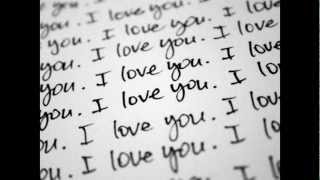 you. I love you. I
you. I love you. I love
you. I love you. I love you.
you. I love you. I love you. I
you. I love you. I love you. I
you. I love you. I love you. I
. I love you. I love you. I
I love you. I